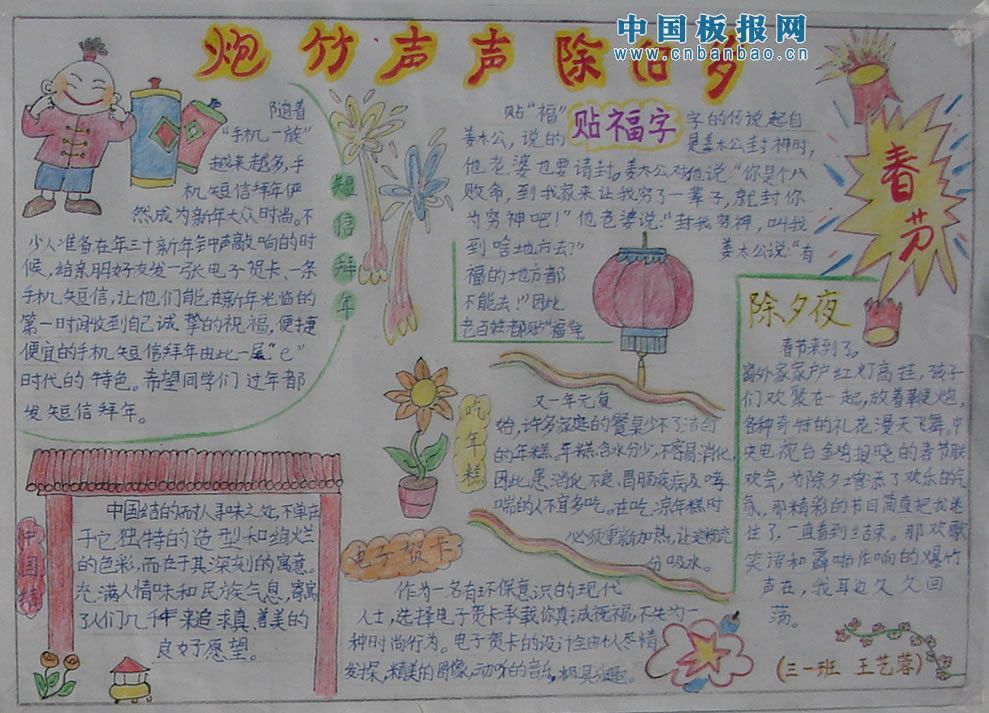 中国板报网
www.cnbanbao.cn
炮竹声声除旧岁
随着
“手机一族”
越来越多,手
机短信拜年俨
然成为新年大众时尚。不
少人准备在年三十新年钟声敲响的时
候,给亲朋好友发一张电子贺卡、一条
手机短信,让他们能在新年来临的
第一时间收到自己诚挚的祝福,便捷
便宜的手机短信拜年由此一展“e”
时代的特色。希望同学们过年都
发短信拜年。
短信拜年
贴福字
贴“福”字的传说起自
姜太公,说的是姜太公封神时,
他老婆也要请封。姜太公对他说:“你是个八
败命,到我家来让我穷了一辈子,就封你
为穷神吧!”他老婆说:“封我穷神,叫我
到啥地方去?”姜太公说:“有
福的地方都
不能去!”因此
老百姓都贴“福”字。
春节
除夕夜
春节来到了。
窗外家家户户红灯高挂,孩子
们欢聚在一起,放着鞭炮,
各种奇特的礼花漫天飞舞。中
央电视台金鸡报晓的春节联
欢会,为除夕之夜添了欢乐的气
氛。那精彩的节目简直把我迷
住了,一直看到结束。那欢歌
笑语和霹啪作响的爆竹
声在,我耳边久久回
荡。
吃年糕
又一年元复
始,许多家庭的餐桌少不了洁白
的年糕。年糕含水分少,不容易消化,
因此患消化不良、胃肠疾病及哮
喘的人不宜多吃。在吃凉年糕时
必须重新加热,让之充
分吸水。
中国结
中国结的耐人寻味之处,不单在
于它独特的造型和绚烂
的色彩,而在于其深刻的寓意。
充满人情味和民族气息,寄寓
了人们几千年来追求真、善美的
良好愿望。
电子贺卡
作为一名有环保意识的现代
人士,选择电子贺卡承载你真诚祝福,不失为一
种时尚行为。电子贺卡的设计全由你尽情
发挥,精美的图像,动听的音乐,极具乐趣。
(三一班 王艺蓉)